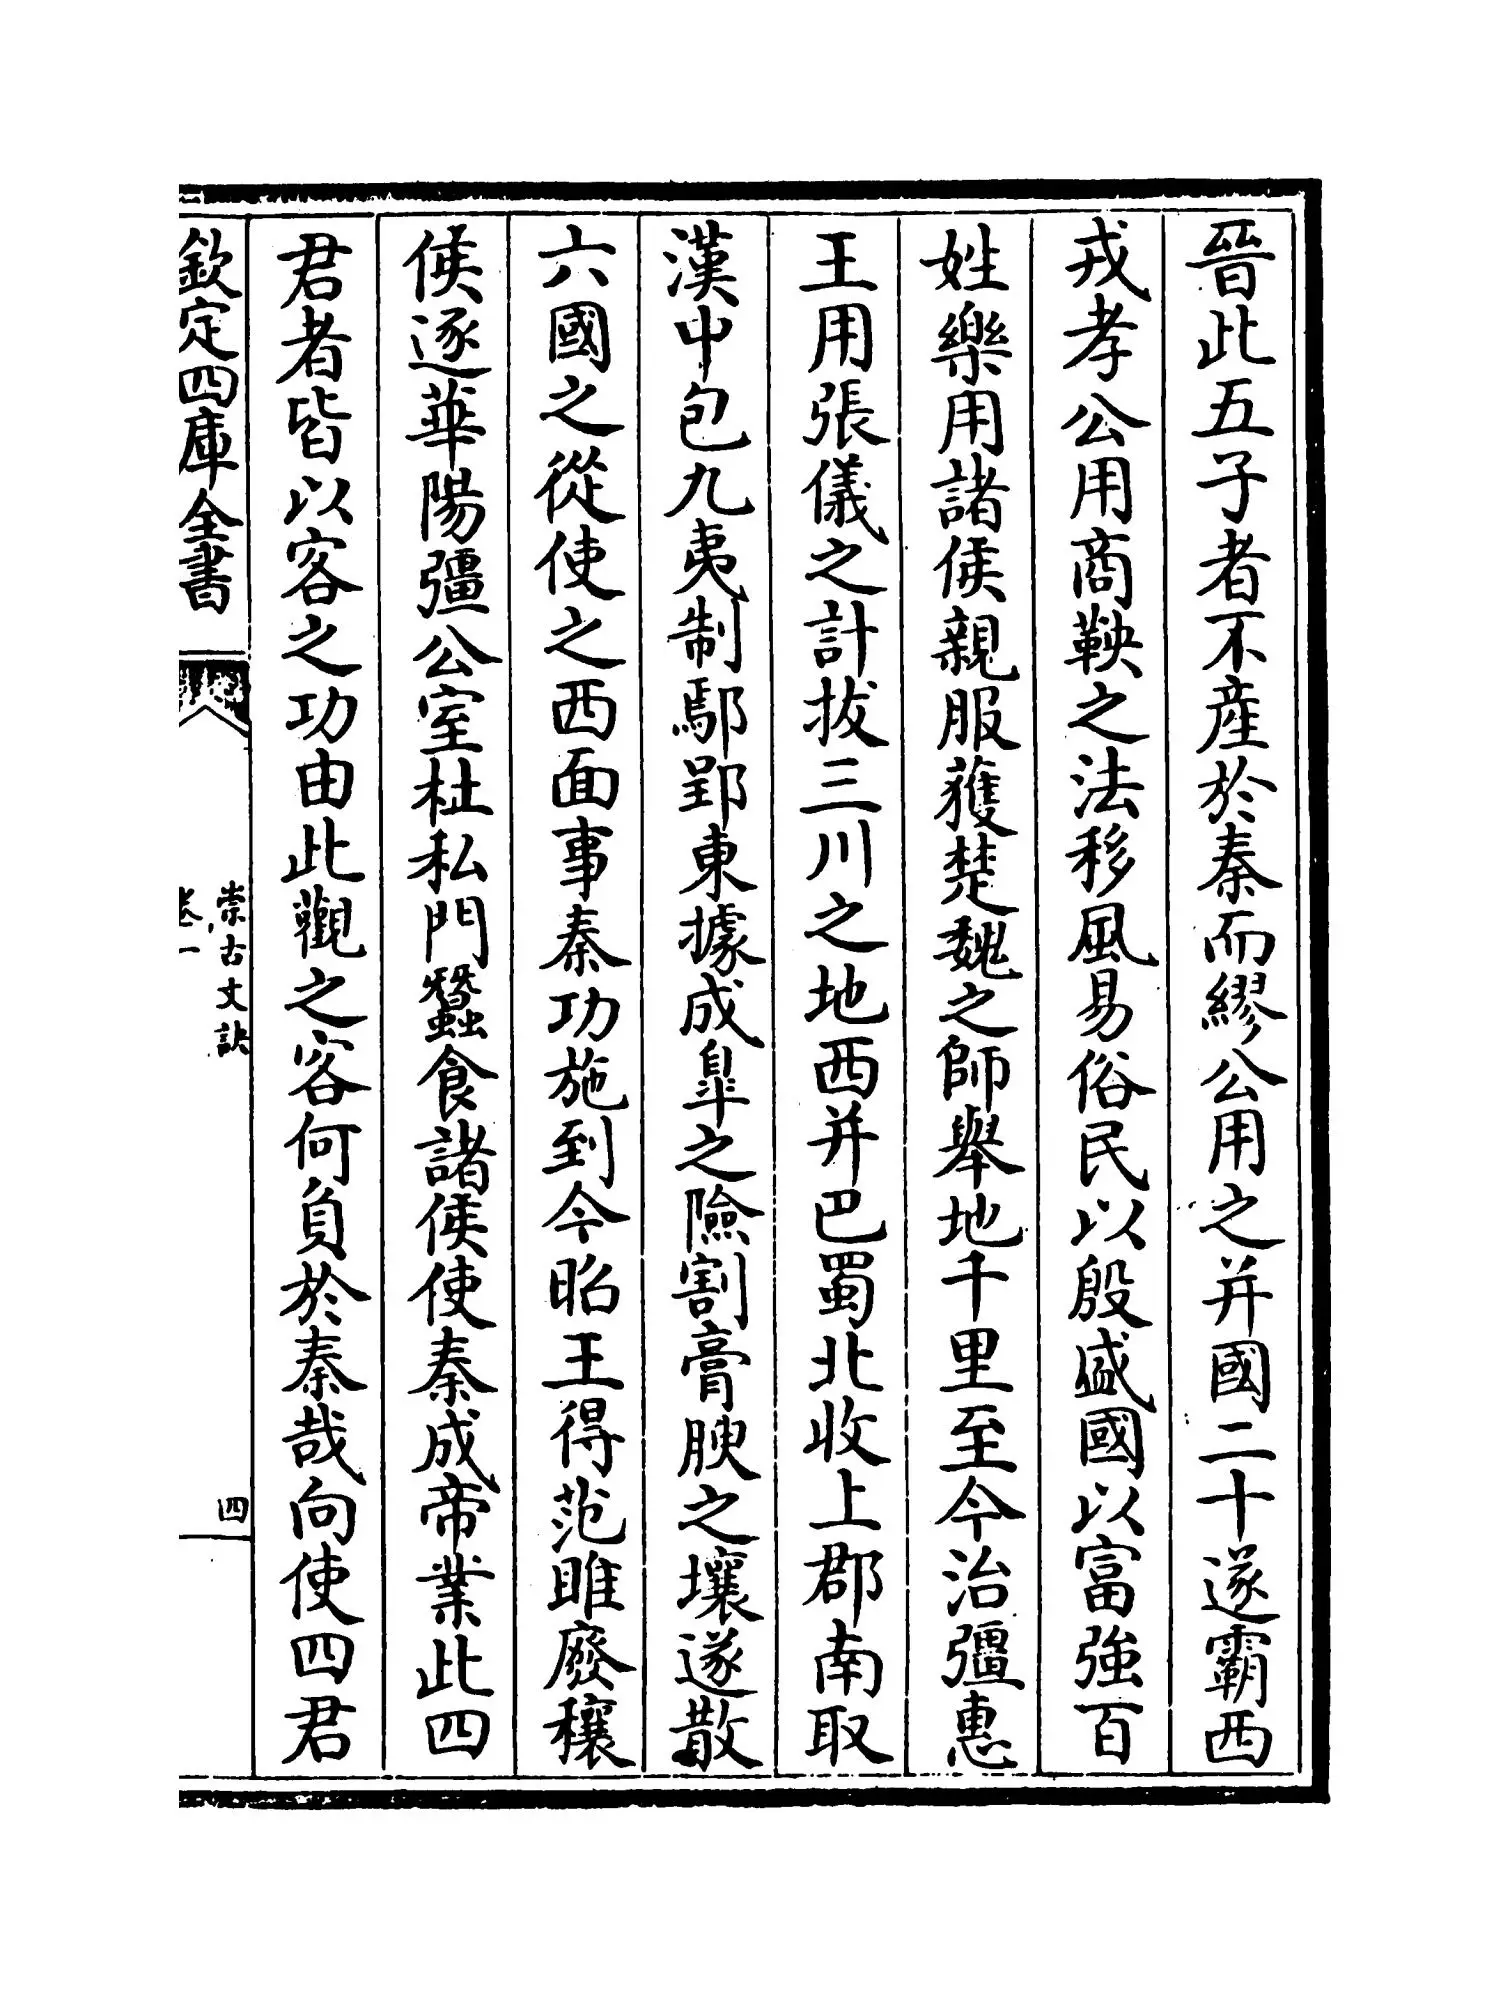 晉此五子者不產於秦而繆公用之并國二十遂霸西
戎孝公用商鞅之法移風易俗民以殷盛國以富強百
姓樂用諸侯親服獲楚魏之師舉地千里至今治彊惠
王用張儀之計拔三川之地西并巴蜀北收上郡南取
漢中包九夷制鄢郢東據成臯之險割膏腴之壤遂散
六國之從使之西面事秦功施到今昭王得范雎廢穰
侯逐華陽彊公室杜私門蠶食諸侯使秦成帝業此四
君者皆以客之功由此觀之客何負於秦哉向使四君
欽定四庫全書
崇古文訣
卷一
四